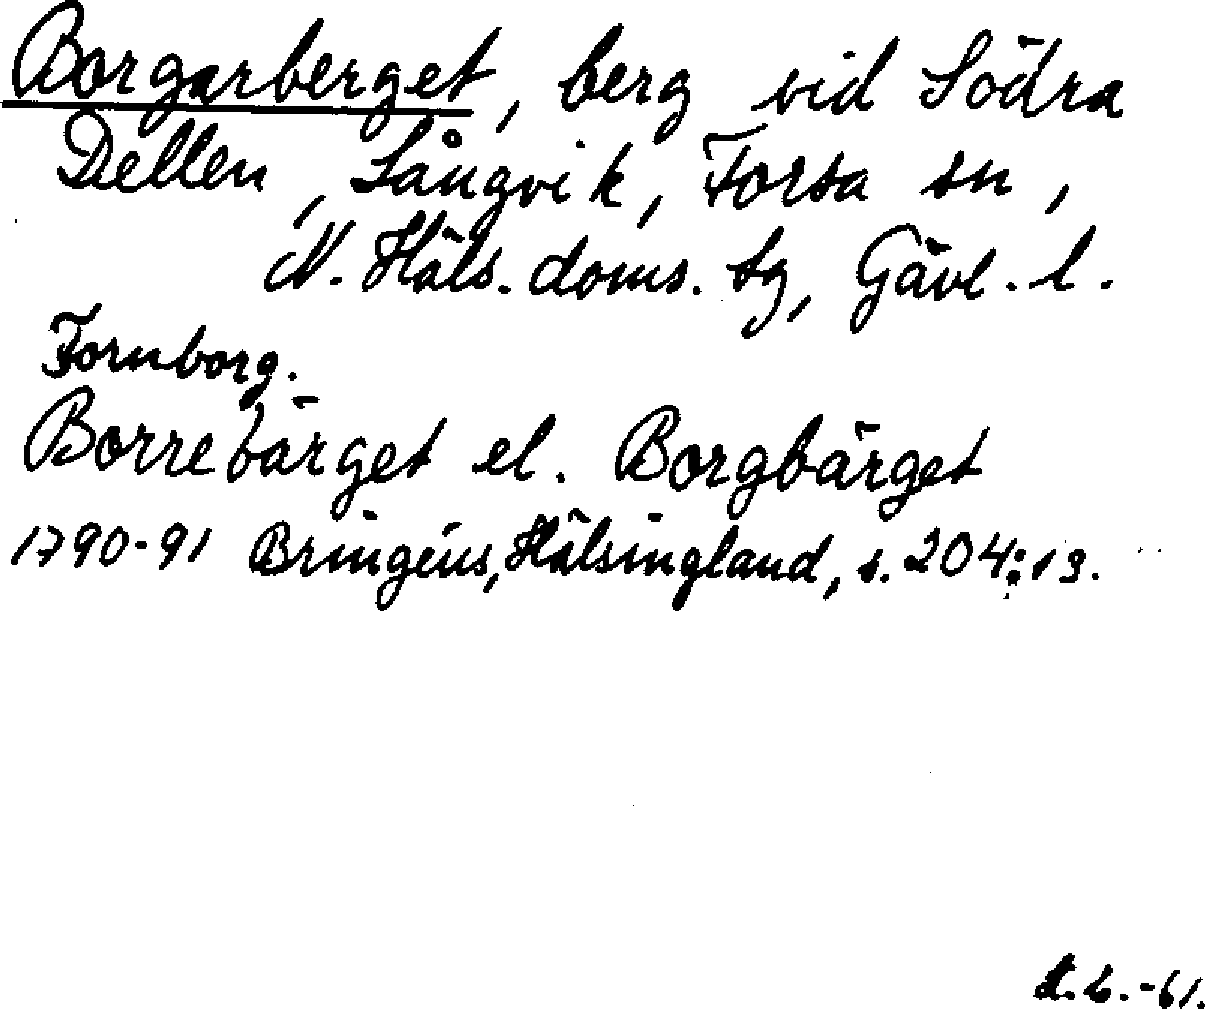 Borgarberget, berg vid Södra
Dellen, Långvik, Forsa sn,
N. Häls. doms. sg, Gävl. l.
Fornborg.
Borrebärget el. Borgbärget
1790-91 Bringéus, Hälsingland, s. 204:13.
-61.